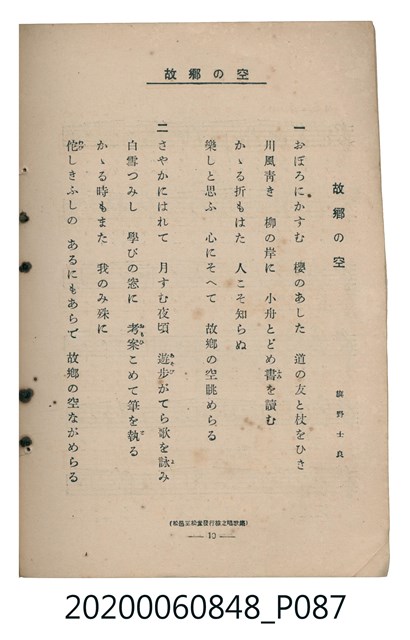 故鄕の空
故鄕の空
野士良
一 おぼろにかすむ 櫻のあした 道の友と杖をひき
川風靑き 柳の岸に 小舟とどめ書を讀む
かゝる折もはた 人こそ知らぬ
樂しと思ふ 心にそへて 故鄕の空眺めらる
二 さやかにはれて 月すむ夜頃 遊步がてら歌を詠み
白雪つみし 學びの窓に 考案こめて筆を執る
かゝる時もまた 我のみ殊に
侘しきふしの あるにもあらで 故鄕の空ながめらる
— 10 —
20200060848_P087